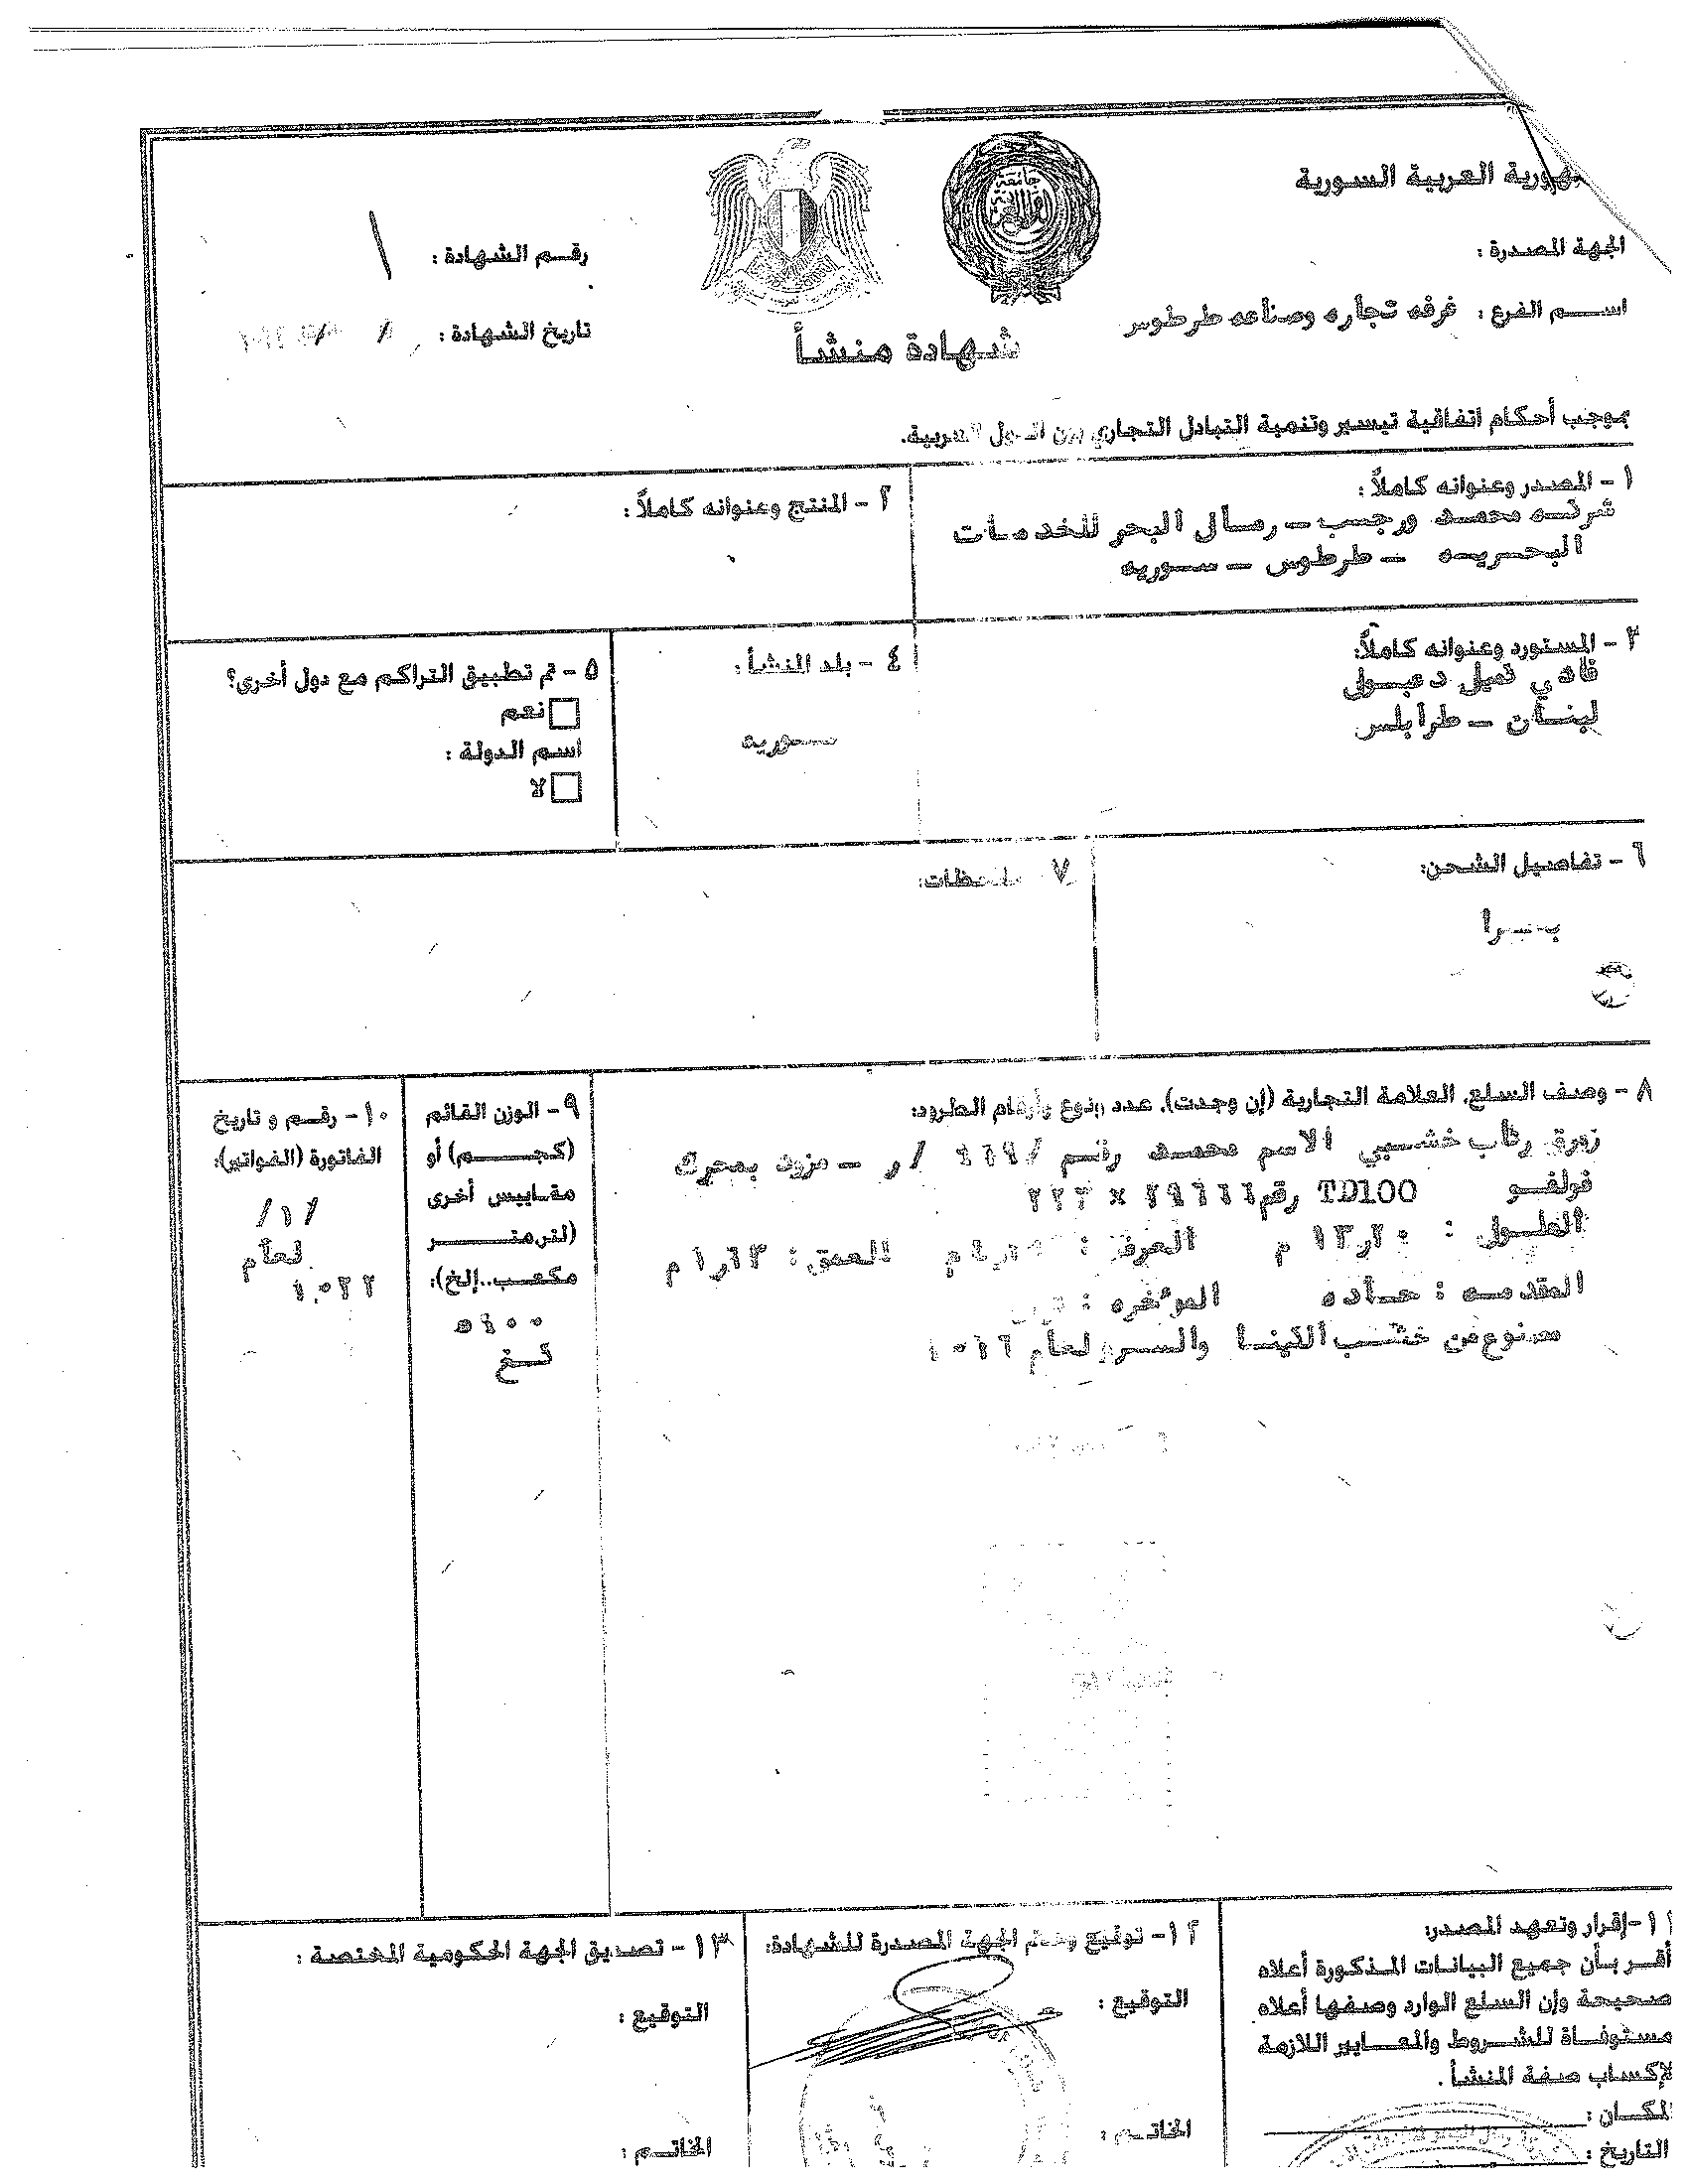 الجمهورية العربية السورية
الجهة المصدرة :
اســـم الفرع : غرفه تجاره وصناعه طرطوس
رقــم الشهادة : ١
تاريخ الشهادة :
شهادة منشأ
بموجب أحكام اتفاقية تيسير وتنمية التبادل التجاري بين الدول العربية.
١ - المصدر وعنوانه كاملاً :
شركـه محمـد ورجـب – رمـال البحر للخدمـات
البحـريـه – طرطوس – سـوريه
٢ - المنتج وعنوانه كاملاً :
٣ - المستورد وعنوانه كاملاً:
فادي كميل دعبـول
لبنـان – طرابلس
٤ - بلد المنشأ :
سـوريه
٥ - تم تطبيق التراكم مع دول أخرى؟
نعم
اسم الدولة :
لا
٦ - تفاصيل الشحن:
بحـرا
٧ - ملاحظات:
٨ - وصف السلع. العلامة التجارية (إن وجدت). عدد ونوع وأرقام الطرود:
زورق ركاب خشـبي الاسم محمـد رقـم / / ر – مزود بمحرك
فولفـو TD100 رقم
الطـول : م العرض : م العمق : ١٫٦٣ م
المقدمـه : حـاده المؤخره :
مصنوع من خشـب الكينـا والسـرو لعام ٢٠١٦
٩ - الوزن القائم
(كجــــم) أو
مقـاييس أخرى
(لترمتـــــر
مكعـب..إلخ):
٥٤٠٠
كــغ
١٠ - رقـم و تاريخ
الفاتورة (الفواتير):
/١/
لعام
٢٠٢٢
١١ -إقرار وتعهد المصدر:
أقــر بـأن جميع البيانـات المـذكورة أعلاه
صحيحة وإن السلع الوارد وصفـها أعلاه
مستوفـاة للشروط والمعـــايير اللازمة
لإكساب صفة المنشأ .
المكــان :
التاريخ :
١٢ - توقيع وختم الجهة المصدرة للشهادة:
التوقيع :
الخاتــم :
١٣ - تصديق الجهة الحكومية المختصة :
التوقيع :
الخاتــم :